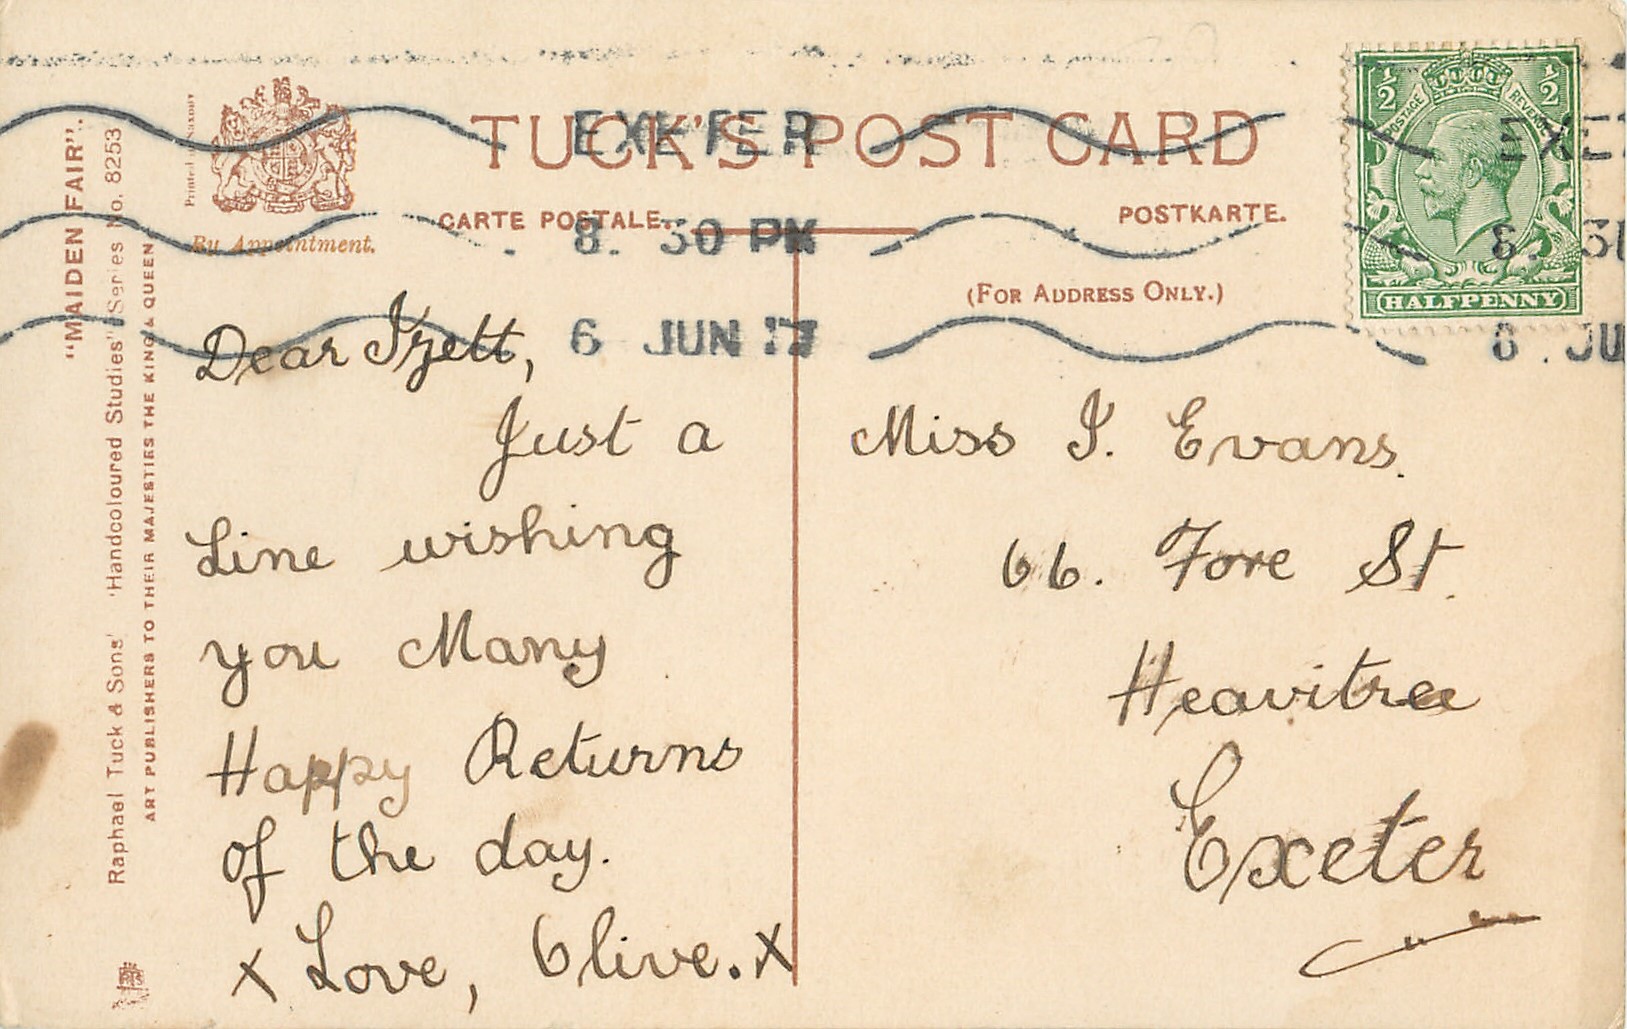 TUCK'S POST CARD
CARTE POSTALE.
POSTKARTE.
(FOR ADDRESS ONLY.)
By Appointment.
"MAIDEN FAIR".
Raphael Tuck & Sons' 'Handcoloured Studies' Series No. 8253
ART PUBLISHERS TO THEIR MAJESTIES THE KING & QUEEN
Printed Saxony
EXETER
8. 30 PM
6 JUN 17
½ ½
POSTAGE REVENUE
HALFPENNY
EXET
8. 30
6 JU
Dear Izett,
Just a
Line wishing
you Many
Happy Returns
of the day.
x Love, Olive. x
Miss I. Evans.
66. Fore St.
Heavitree
Exeter